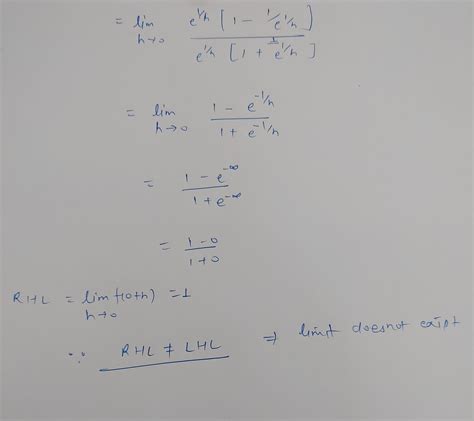 = lim h→0 e^{1/h} [ 1 - 1/e^{1/h} ] / e^{1/h} [ 1 + 1/e^{1/h} ]
= lim h→0 1 - e^{-1/h} / 1 + e^{-1/h}
= 1 - e^{-∞} / 1 + e^{-∞}
= 1-0 / 1+0
RHL = lim h→0 f(0+h) = 1
∵ RHL ≠ LHL ⇒ limit doesnot exist